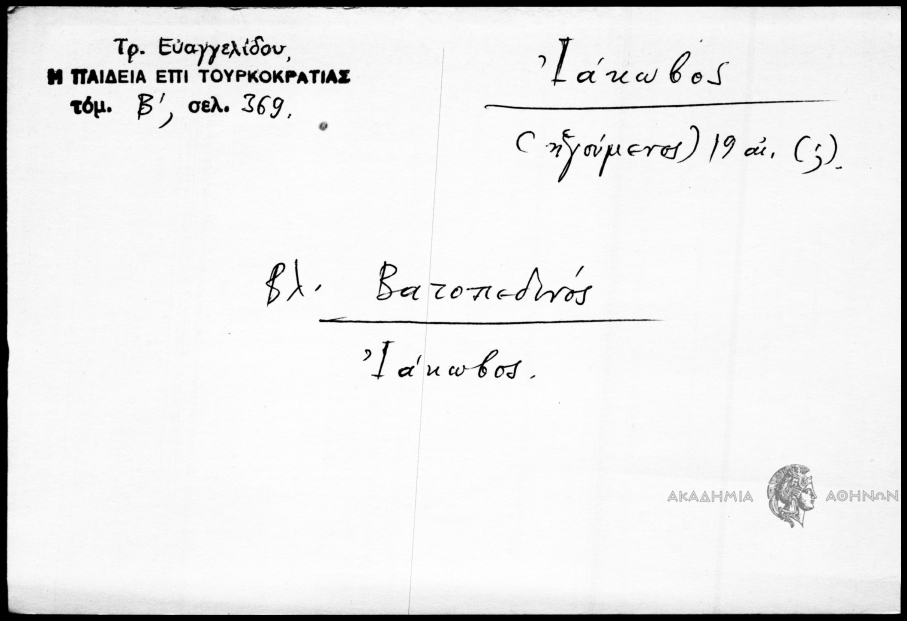 Τρ. Εὐαγγελίδου,
Η ΠΑΙΔΕΙΑ ΕΠΙ ΤΟΥΡΚΟΚΡΑΤΙΑΣ
τόμ. Β', σελ. 369.
Ἰάκωβος
(ἡγούμενος) 19 αἰ. (;).
βλ. Βατοπεδινός
Ἰάκωβος.
ΑΚΑΔΗΜΙΑ ΑΘΗΝΩΝ